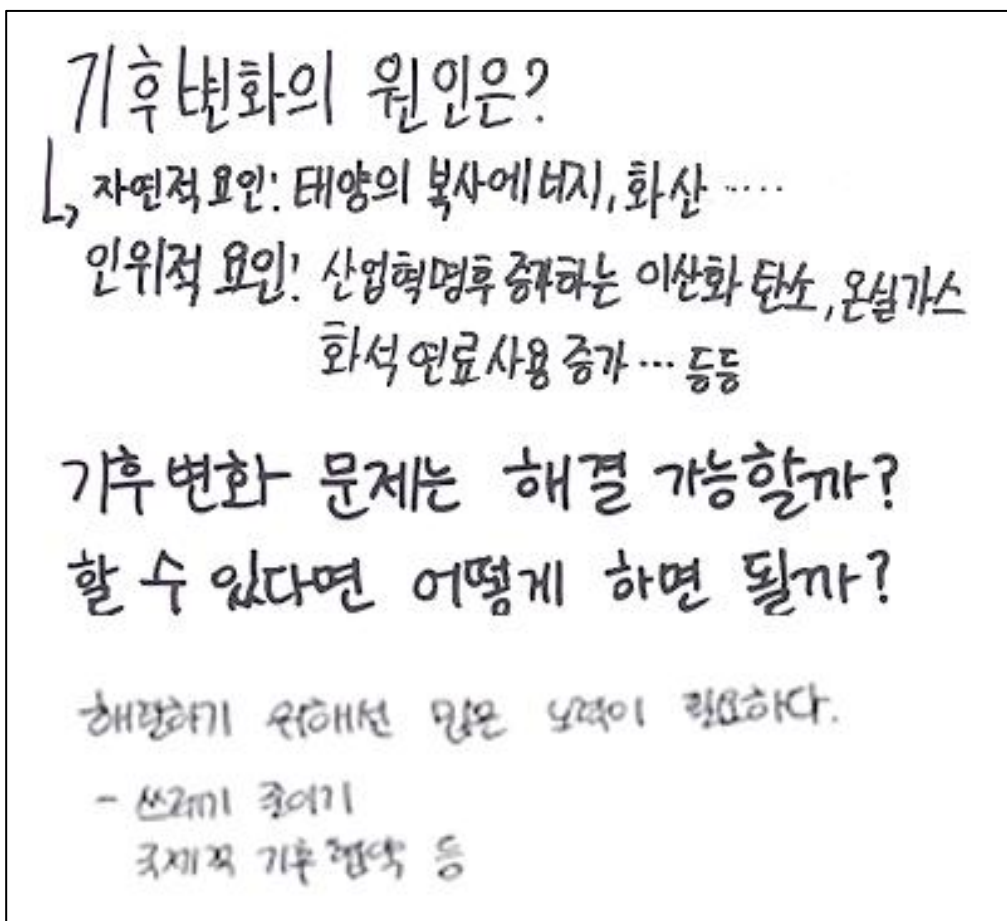 기후변화의 원인은?
↳ 자연적 요인: 태양의 복사에너지, 화산 .....
인위적 요인: 산업혁명후 증가하는 이산화 탄소, 온실가스
화석 연료 사용 증가 ... 등등
기후 변화 문제는 해결 가능할까?
할 수 있다면 어떻게 하면 될까?
위해선 많은 노력이 필요하다.
- 쓰레기 줄이기
국제적 기후 협약 등